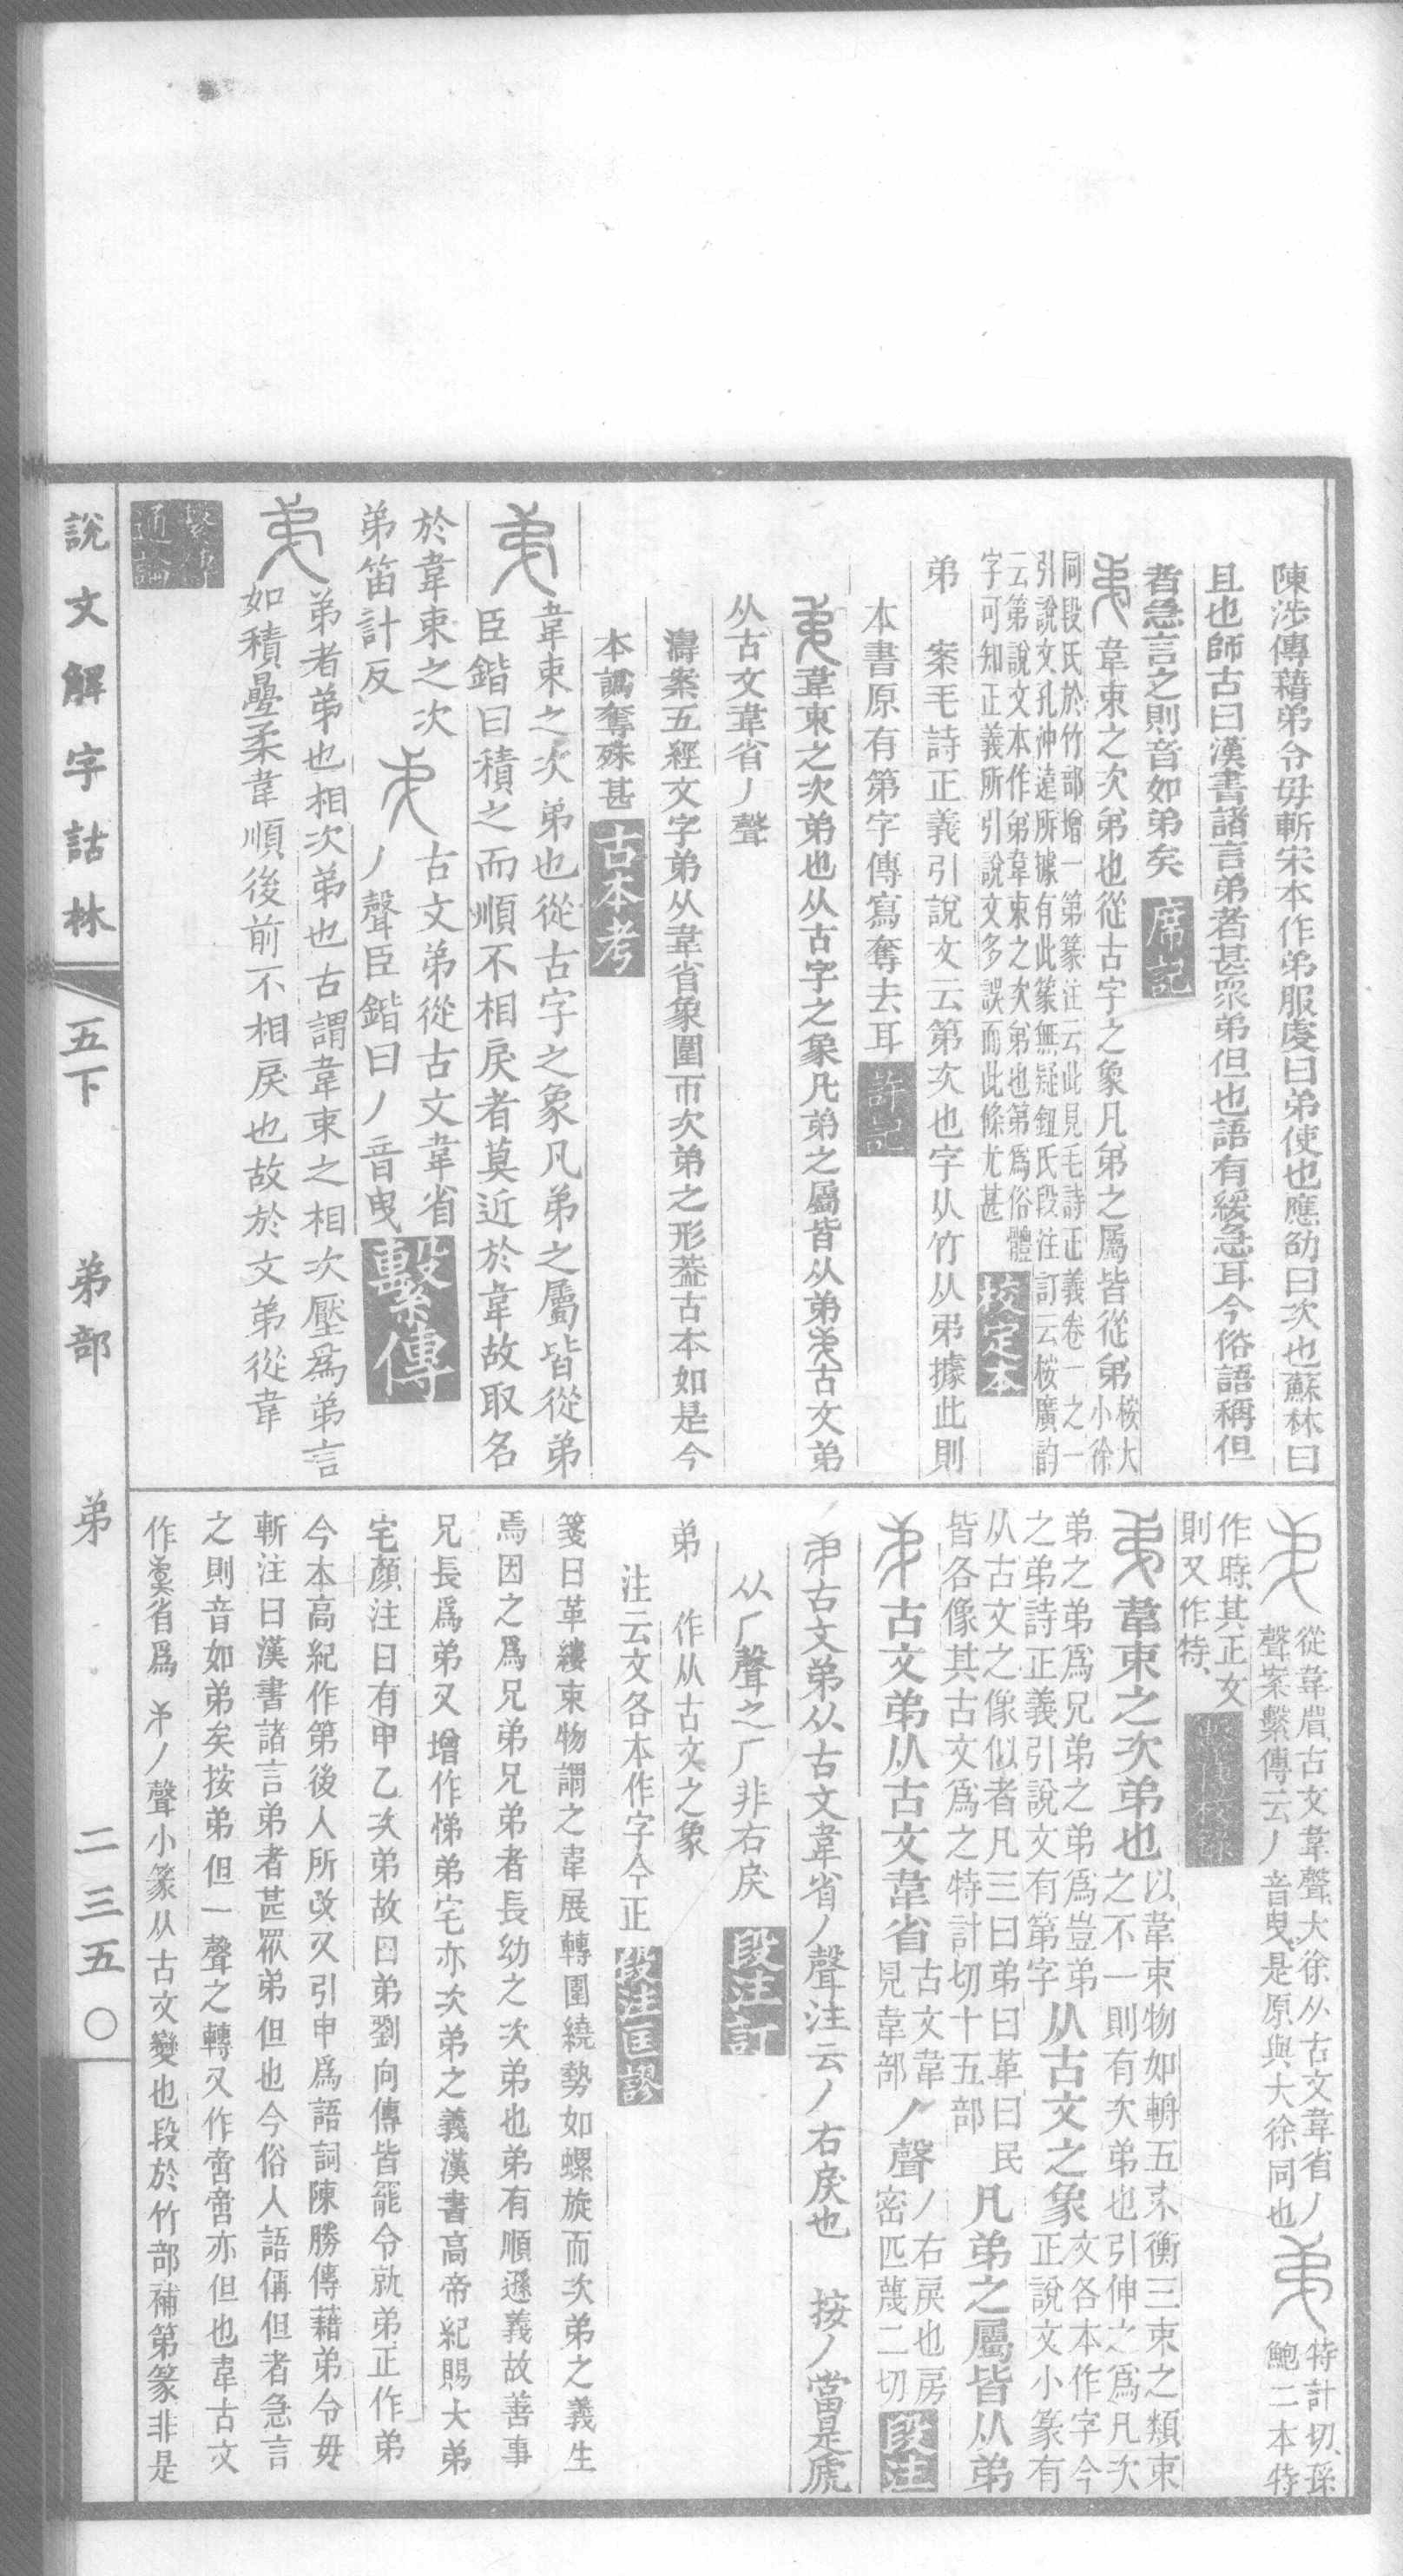 陳涉傳藉弟令毋斬宋本作弟服虔曰弟使也應劭曰次也蘇林曰
且也師古曰漢書諸言弟者甚眾弟但也語有緩急耳今俗語稱但
者急言之則音如弟矣 席記
韋束之次弟也從古字之象凡弟之屬皆從弟 桉大小徐
同段氏於竹部增一第篆注云此見毛詩正義卷一之一
引說文孔沖遠所據有此篆無疑鈕氏段注訂云桉廣韵
云第說文本作弟韋束之次弟也第為俗體
字可知正義所引說文多誤而此條尤甚 校定本
弟 案毛詩正義引說文云第次也字从竹从弟據此則
本書原有第字傳寫奪去耳 許記
韋束之次弟也从古字之象凡弟之屬皆从弟古文弟
从古文韋省丿聲
濤案五經文字弟从韋省象圍帀次弟之形葢古本如是今
本譌奪殊甚 古本考
韋束之次弟也從古字之象凡弟之屬皆從弟
臣鍇曰積之而順不相戾者莫近於韋故取名
於韋束之次 古文弟從古文韋省
弟笛計反 丿聲臣鍇曰丿音曳 繫傳
弟者弟也相次弟也古謂韋束之相次壓為弟言
如積疊柔韋順後前不相戾也故於文弟從韋
繫傳通論
說文解字詁林 五下 弟部 弟 二三五〇
從韋㞕古文韋聲大徐从古文韋省丿
聲案繫傳云丿音曳是原與大徐同也
特計切孫
鮑二本特
作時其正文
則又作特 繫傳校錄
韋束之次弟也 以韋束物如輈五束衡三束之類束
之不一則有次弟也引伸之為凡次
弟之弟為兄弟之弟為豈弟
之弟詩正義引說文有第字 从古文之象 文各本作字今
正說文小篆有
从古文之像似者凡三曰弟曰革曰民
皆各像其古文為之特計切十五部 凡弟之屬皆从弟
古文弟从古文韋省 古文韋
見韋部 丿聲 丿右戾也房
密匹蔑二切 段注
古文弟从古文韋省丿聲注云丿右戾也 按丿當是虒
从𠂆聲之𠂆非右戾 段注訂
弟 作从古文之象
注云文各本作字今正 段注匡謬
箋曰革縷束物謂之韋展轉圍繞勢如螺旋而次弟之義生
焉因之為兄弟兄弟者長幼之次弟也弟有順遜義故善事
兄長為弟又增作悌弟宅亦次弟之義漢書高帝紀賜大弟
宅顏注曰有甲乙次弟故曰弟劉向傳皆罷令就弟正作弟
今本高紀作第後人所改又引申為語詞陳勝傳藉弟令毋
斬注曰漢書諸言弟者甚眾弟但也今俗人語偁但者急言
之則音如弟矣按弟但一聲之轉又作啻啻亦但也韋古文
省為丿聲小篆从古文變也段於竹部補第篆非是